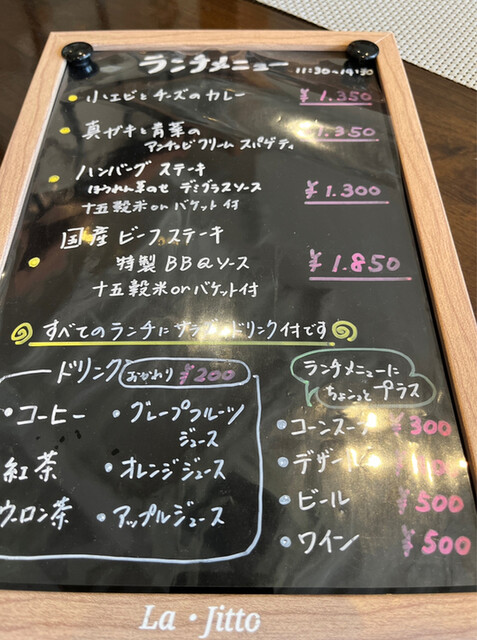 ランチメニュー 11:30~14:30
小エビとチーズのカレー ¥1.350
真ガキと青菜の ¥1.350
アンチョビクリーム スパゲティ
ハンバーグ ステーキ
ほうれん草のせ デミグラスソース ¥1.300
十五穀米orバケット付
国産ビーフステーキ
特製BBQソース ¥1.850
十五穀米orバケット付
すべてのランチにサラダ・ドリンク付です
ドリンク おかわり ¥200
・コーヒー ・グレープフルーツ
ジュース
紅茶 ・オレンジジュース
ウーロン茶 ・アップルジュース
ランチメニューに
ちょこっと プラス
・コーンスープ ¥300
・デザート
・ビール ¥500
・ワイン ¥500
La・Jitto